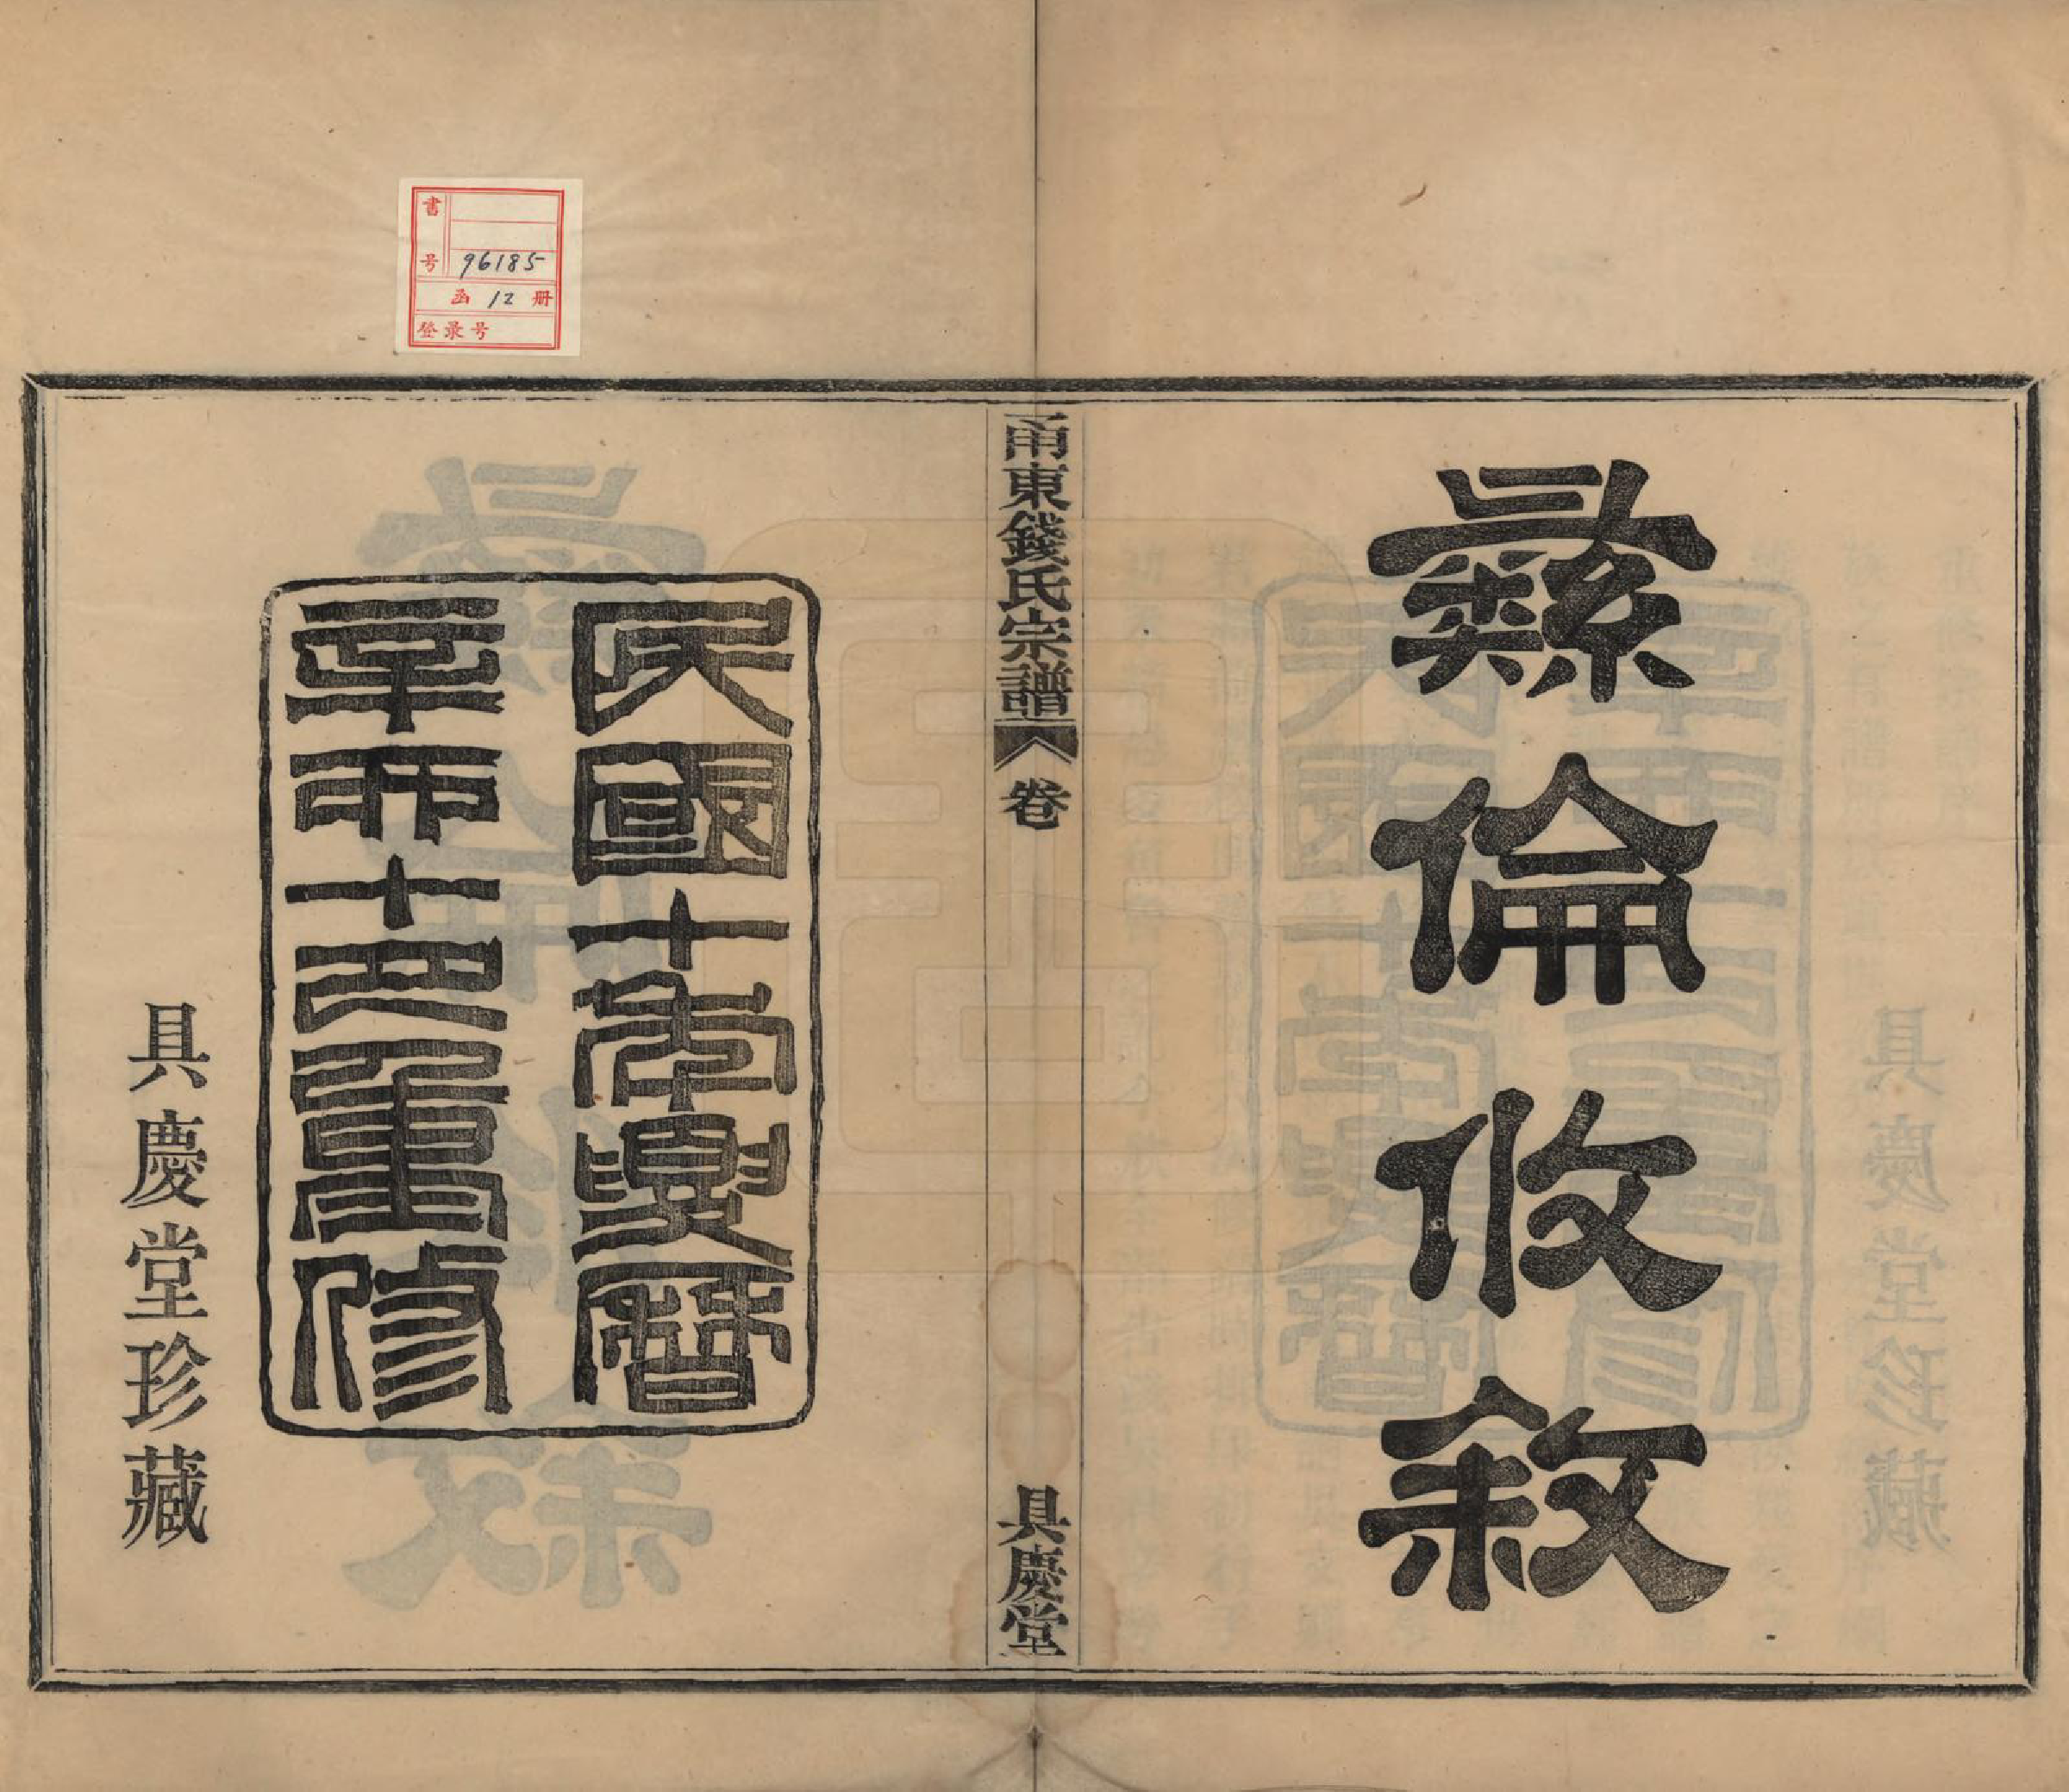 彝倫攸敘
甬東錢氏宗譜 卷 具慶堂
民國十年夏曆
辛酉十月重修
具慶堂珍藏
書号 96185
函 12 册
登录号